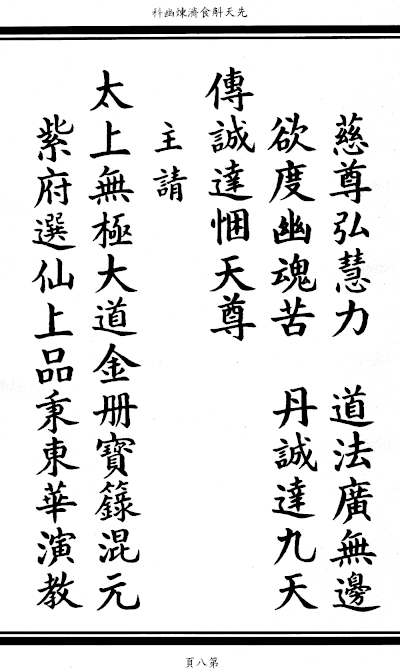 先天斛食濟煉幽科
慈尊弘慧力　道法廣無邊
欲度幽魂苦　丹誠達九天
傳誠達悃天尊
主請
太上無極大道金册寶籙混元
紫府選仙上品秉東華演教
第八頁